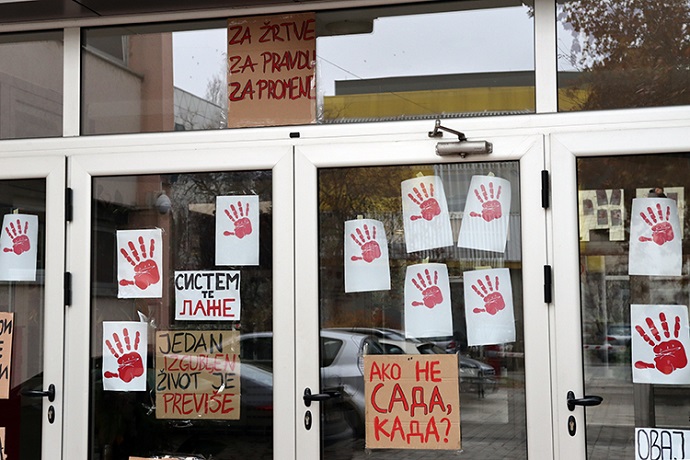 ZA ŽRTVE
ZA PRAVDU
ZA PROMENE
СИСТЕМ
ТЕ
ЛАЖЕ
JEDAN
IZGUBLJEN
ŽIVOT JE
PREVIŠE
АКО НЕ
САДА,
КАДА?
ОВАЈ